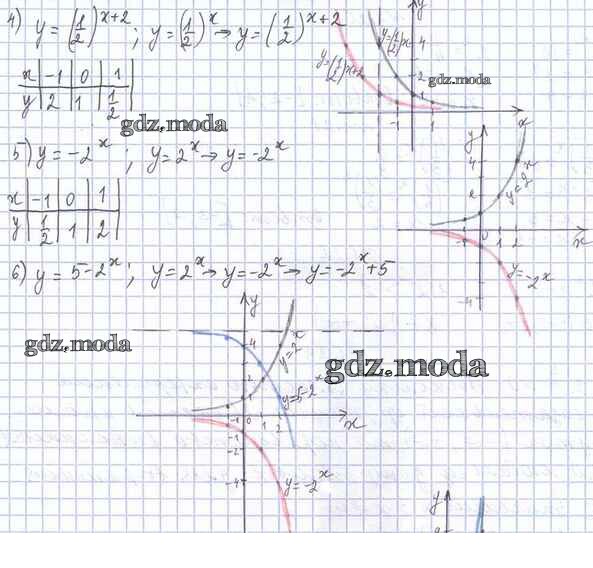 4) y = (1/2)^(x+2) ; y = (1/2)^x → y = (1/2)^(x+2)
x | -1 | 0 | 1
y | 2 | 1 | 1/2
y=(1/2)^(x+2)
y=(1/2)^x
y
4
2
-1
1
x
gdz.moda
gdz.moda
5) y = -2^x ; y = 2^x → y = -2^x
x | -1 | 0 | 1
y | 1/2 | 1 | 2
y
4
y=2^x
-1 0 1 2
x
y=-2^x
-4
6) y = 5-2^x ; y = 2^x → y = -2^x → y = -2^x+5
y
4
2
y=2^x
y=5-2^x
-1 0 1 2
x
-1
-2
-4
y=-2^x
gdz.moda
gdz.moda
y